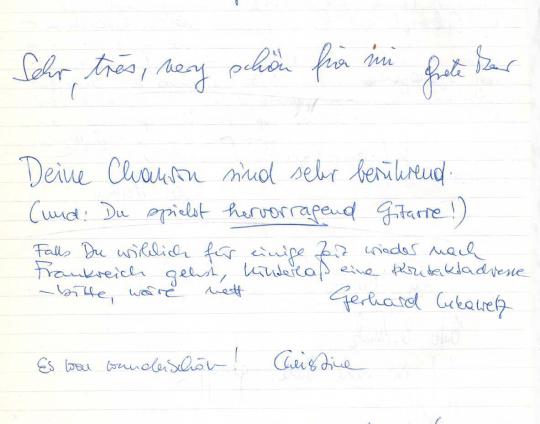 Sehr, très, very schön für mi Grete
Deine Chanson sind sehr berührend.
(und: Du spielst hervorragend Gitarre!)
Falls Du wirklich für einige Zeit wieder nach
Frankreich gehst, hinterlaß eine Kontaktadresse
– bitte, wäre nett Gerhard
Es war wunderschön! Christine